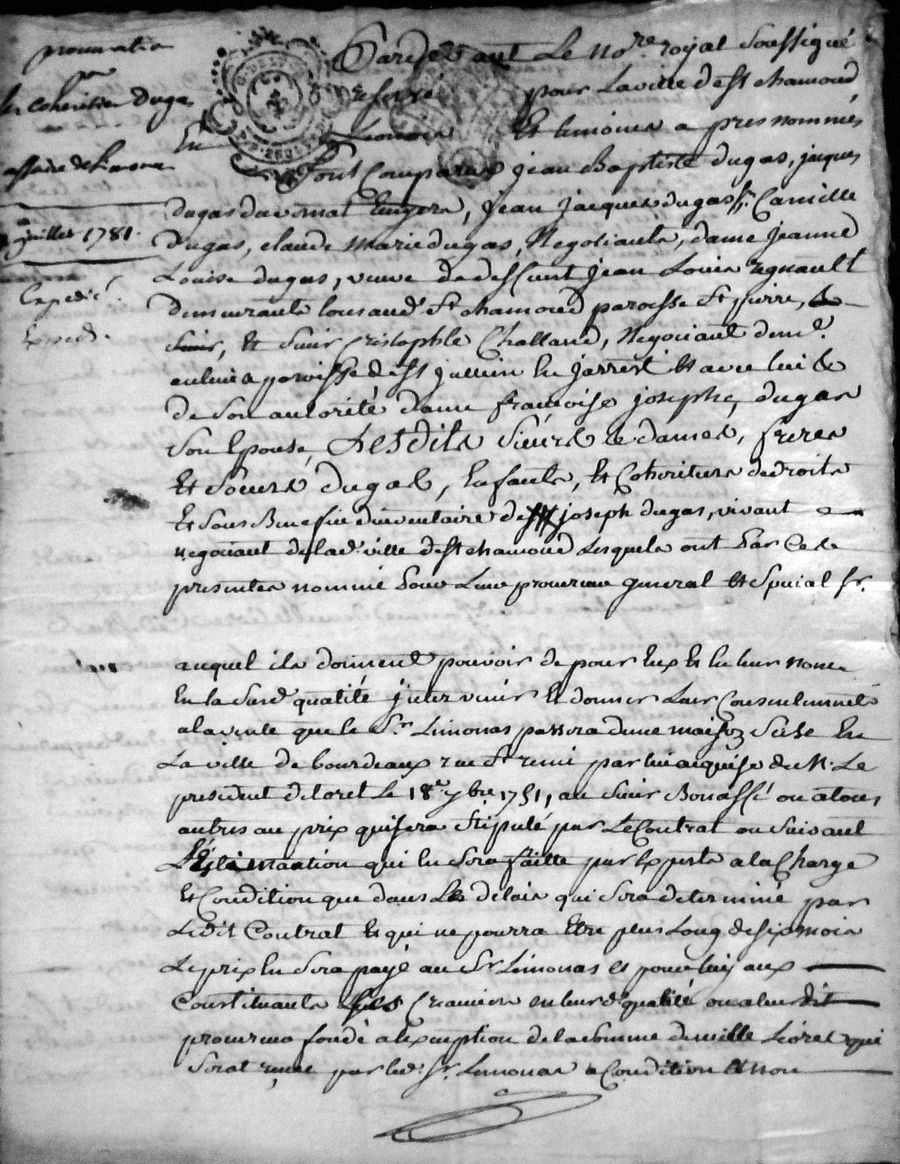 procuration
par
les coheritiers Dugas
affaire de
juillet 1781.
Expedié.
Exped.
Pardevant Le No.re royal Soussigné
pour La ville de St chamond
En Et temoins a pres nommés
Sont Comparus Jean Baptiste dugas, jaques
dugas duvernat Jean jacques dugas fr. Camille
Dugas, claude Marie dugas, Negotiants, dame jeanne
Louise dugas, veuve de deffunt jean Louis regnault
demeurants tous aud. St chamond paroisse St pierre, &
Sieur, Et Sieur Cristophle Challand, Negociant dem.t
paroisse de St jullien En jarrest Et avec lui &
de Son autorité dame francoise josephe, dugas
Son Epouse, Lesdits Sieurs & dames, freres
Et Soeurs dugas, Enfants, Et Coheritiers de droits
Et Sous Benefice d'inventaire de joseph dugas, vivant
negociant de lad. ville de St chamond Lesquels ont par Ces
presentes nommé pour Leur procureur general Et Special Sr.
auquel ils donnent pouvoir de pour Eux Et En leur nom
En la Susd. qualité jntervenir Et donner Leur Consentement
a la vente que le Sr. Limouas passera d'une maison Size En
La ville de bourdeaux rue St remi par lui acquise de M. Le
president de loret Le 18e 7bre 1751, au Sieur Bonaffé ou a tous
autres au prix qui sera Stipulé par Le Contrat ou Suivant
L'Estimation qui En Sera faitte par Experts a la Charge
Et Condition que dans Les delais qui Sera determiné par
Ledit Contrat Et qui ne pourra Etre plus Long de Six mois
Le prix En Sera payé au Sr. Limouas et pour luy aux
Constituants Creanciers en leurd. qualité ou a leurdit
procureur fondé a l'exception de la Somme de mille Livres qui
Serat reçue par led. Sr. Limouas a Condition Et non